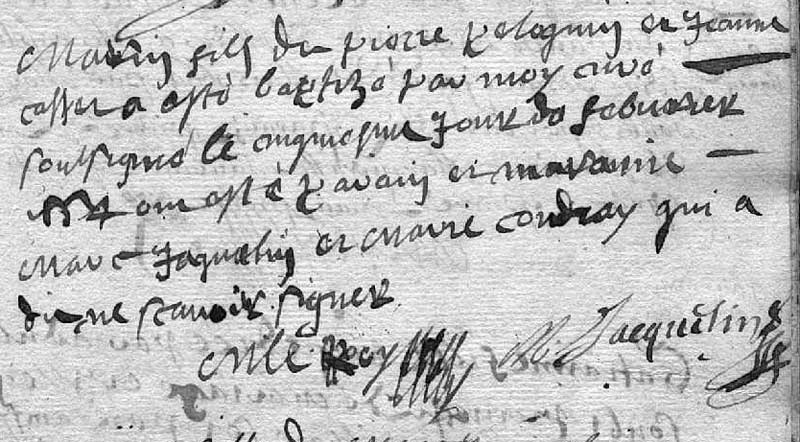 Marin fils de pierre peloquin et Jeanne
a esté baptizé par moy curé
soubsigné le cinquiesme Jour de febvrier
ont esté parain et maraine
Marc Jaquelin et Marie Coudray qui a
dit ne scavoir signer
M le Roy M. Jacquelin